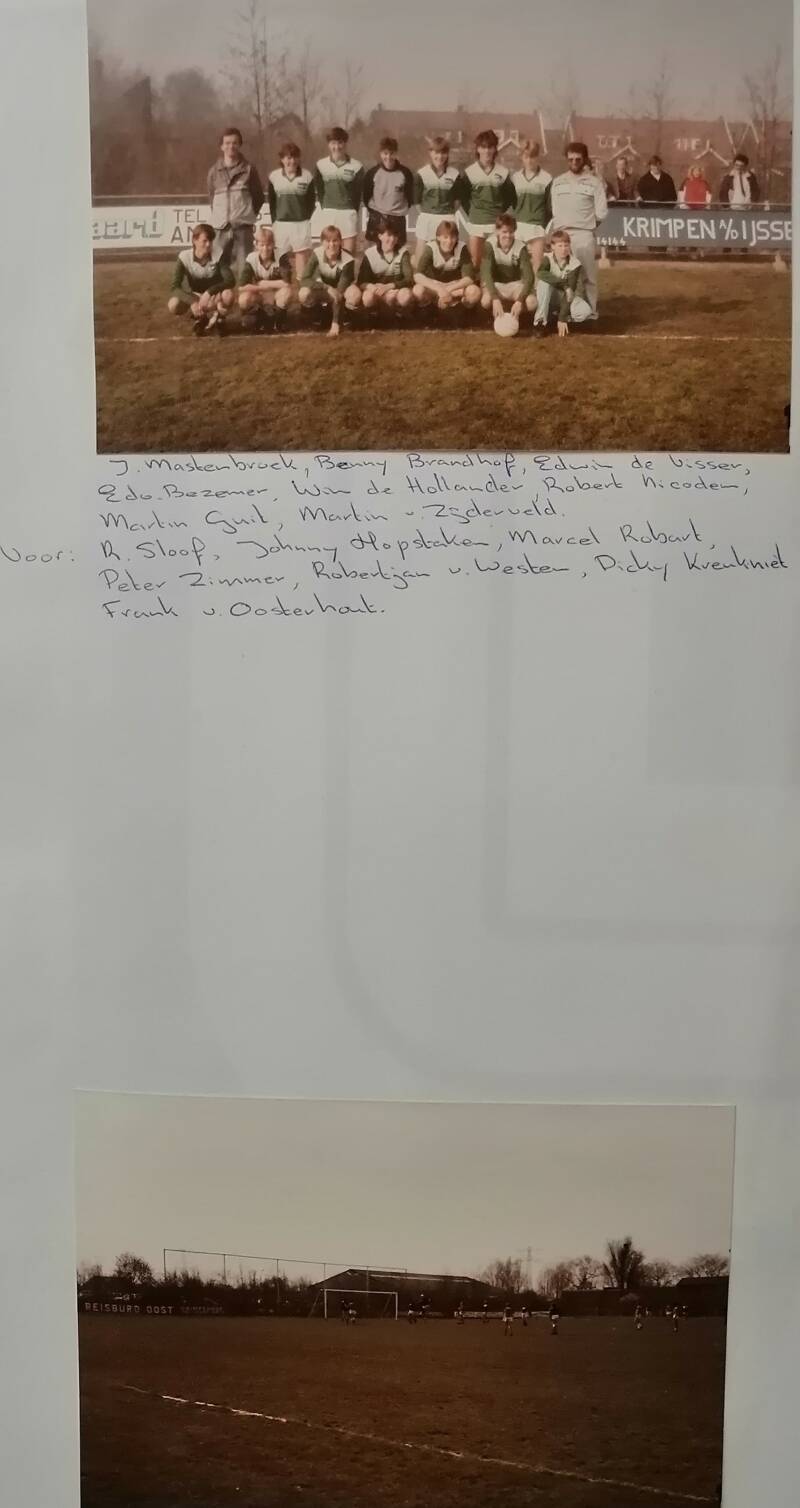 aard TEL
KRIMPEN A/D IJSSE
14144
J. Mastenbroek, Benny Brandhof, Edwin de Visser,
Edo. Bezemer, Wim de Hollander, Robert Nicodem,
Martin Guit, Martin v. Zijderveld.
Voor: R. Sloof, Johnny Hopstaken, Marcel Robart,
Peter Zimmer, Robertjan v. Westen, Dicky Kreukniet
Frank v. Oosterhout.
REISBURO OOST